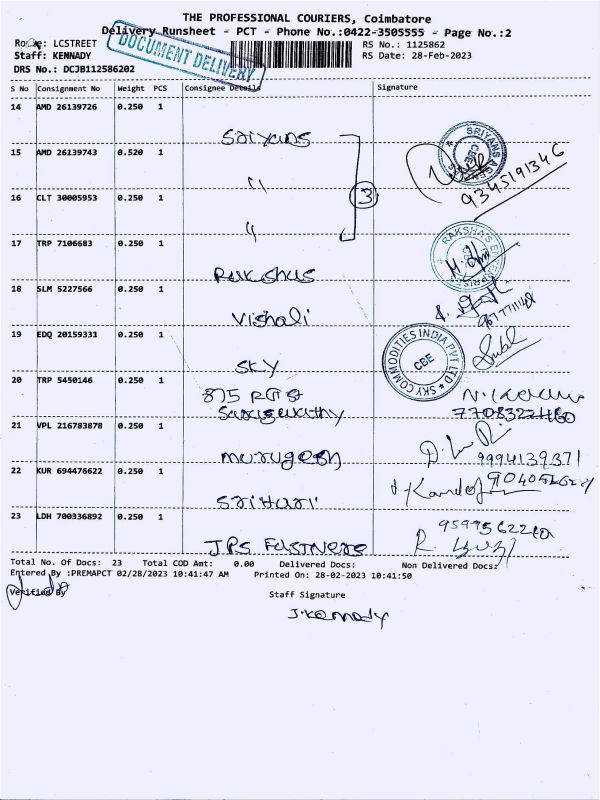 THE PROFESSIONAL COURIERS, Coimbatore
Delivery Runsheet - PCT - Phone No.:0422-3505555 - Page No.:2
Route: LCSTREET
DOCUMENT DELIVERY
RS No.: 1125862
Staff: KENNADY
RS Date: 28-Feb-2023
DRS No.: DCJB112586202
S No Consignment No Weight PCS Consignee Details Signature
14 AMD 26139726 0.250 1
Sriyans
15 AMD 26139743 0.520 1
"
SRIYANS
CBE
9345191346
3
16 CLT 30005953 0.250 1
"
17 TRP 7106683 0.250 1
Rakshas
RAKSHAS ENTERPRISES
18 SLM 5227566 0.250 1
Vishali
19 EDQ 20159331 0.250 1
SKY
SKY COMMODITIES INDIA PVT LTD
CBE
20 TRP 5450146 0.250 1
875
21 VPL 216783878 0.250 1
murugesh
9994139371
22 KUR 694476622 0.250 1
Srihari
23 LDH 700336892 0.250 1
JPS Fastners
Total No. Of Docs: 23 Total COD Amt: 0.00 Delivered Docs: Non Delivered Docs:
Entered By :PREMAPCT 02/28/2023 10:41:47 AM Printed On: 28-02-2023 10:41:50
Verified By
Staff Signature
J.Kennady